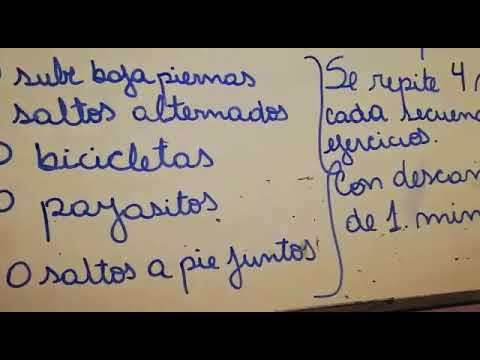 sube baja piernas
saltos alternados
0 bicicletas
0 payasitos
0 saltos a pie juntos
Se repite 4
cada
ejercicios.
Con
de 1. min